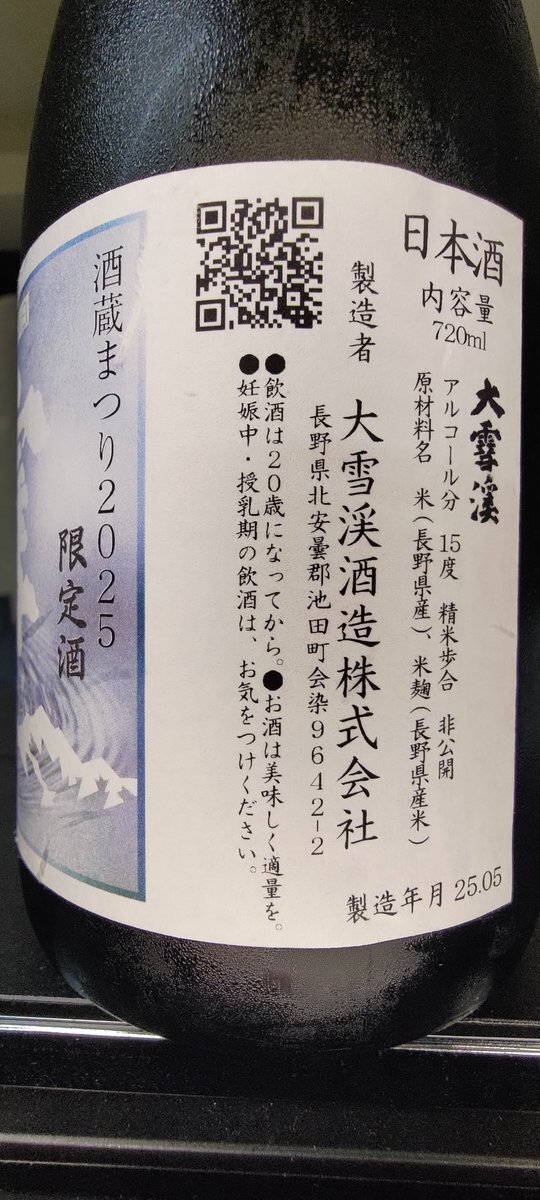 日本酒
内容量
720ml
大雪渓
アルコール分 15度 精米歩合 非公開
原材料名 米(長野県産)、米麹(長野県産米)
製造者
大雪渓酒造株式会社
長野県北安曇郡池田町会染9642-2
●飲酒は20歳になってから。●お酒は美味しく適量を。
●妊娠中・授乳期の飲酒は、お気をつけください。
製造年月 25.05
酒蔵まつり2025
限定酒